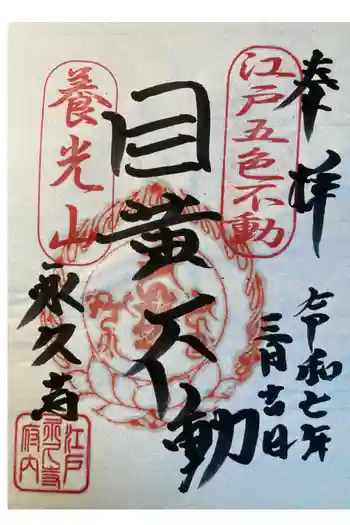 奉拝
令和七年
三月吉日
江戸五色不動
目黄不動
養光山
永久寺
江戸
永久寺
府内